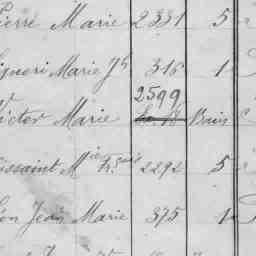 Pierre Marie 2331 5
Marie Jh 316 1
2599
Victor Marie
Toussaint Mie Fçois 2292 5
Jean Marie 375 1